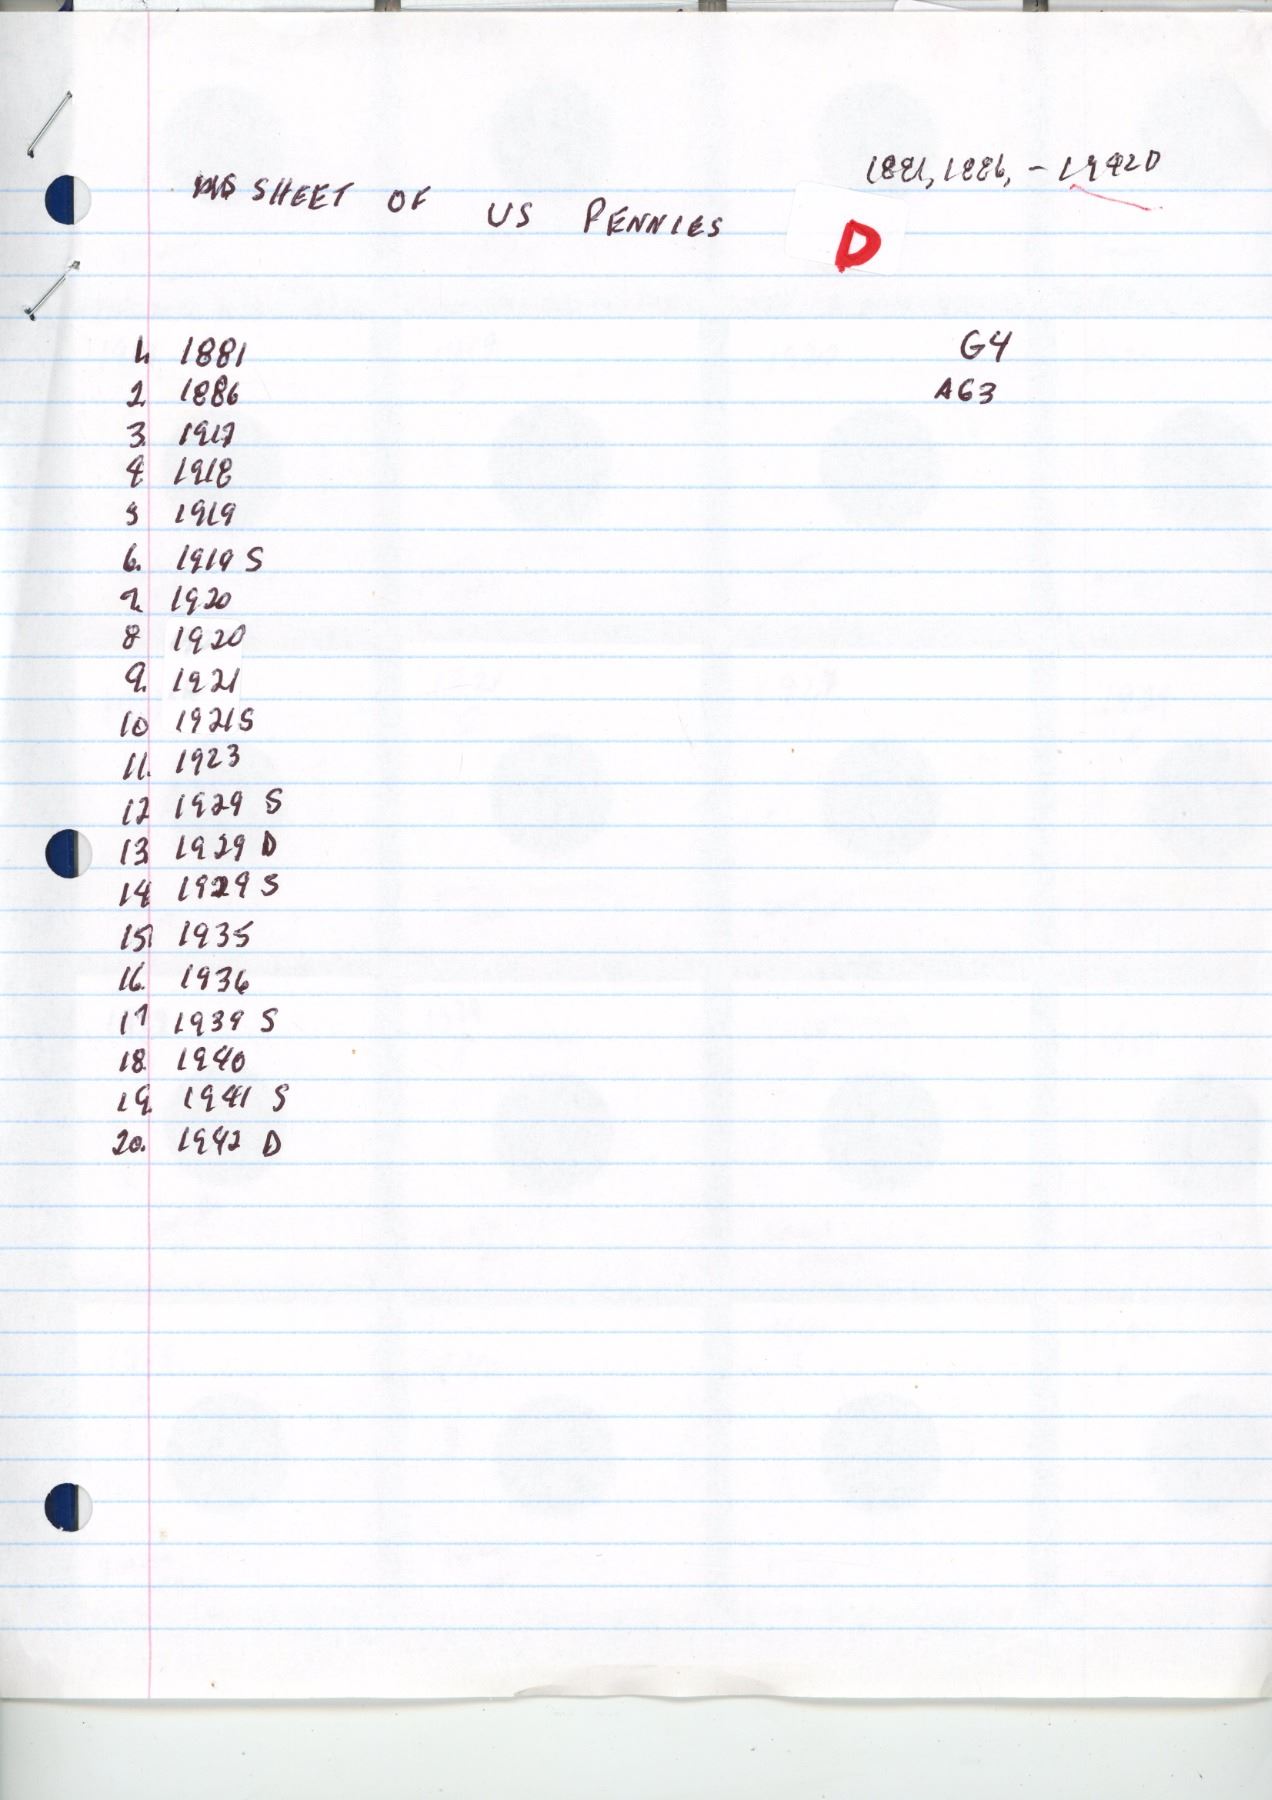 1881, 1886, - 1942D
SHEET OF US PENNIES
D
1. 1881 G4
2 1886 AG3
3. 1917
4 1918
5 1919
6. 1919 S
7. 1920
8 1920
9. 1921
10 1921S
11. 1923
12 1929 S
13 1929 D
14 1929 S
15 1935
16. 1936
17 1939 S
18. 1940
19. 1941 S
20. 1942 D